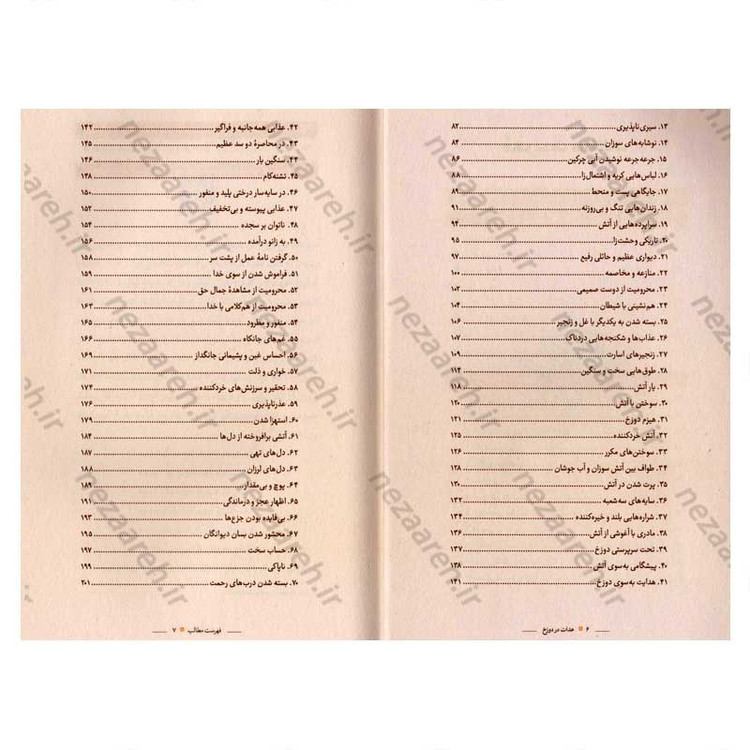 ۱۳. سیری‌ناپذیری ۸۲
۱۴. نوشابه‌های سوزان ۸۴
۱۵. جرعه‌جرعه نوشیدن آبی چرکین ۸۶
۱۶. لباس‌هایی کریه و اشتعال‌زا ۸۸
۱۷. جایگاهی پست و منحط ۸۹
۱۸. زندان‌هایی تنگ و بی‌روزنه ۹۱
۱۹. سراپرده‌هایی از آتش ۹۴
۲۰. تاریکی وحشت‌زا ۹۵
۲۱. دیواری عظیم و حائلی رفیع ۹۷
۲۲. منازعه و مخاصمه ۱۰۰
۲۳. محرومیت از دوست صمیمی ۱۰۲
۲۴. هم‌نشینی با شیطان ۱۰۴
۲۵. بسته شدن به یکدیگر با غل و زنجیر ۱۰۶
۲۶. عذاب‌ها و شکنجه‌هایی دردناک ۱۰۷
۲۷. زنجیرهای اسارت ۱۰۹
۲۸. طوق‌هایی سخت و سنگین ۱۱۴
۲۹. یار آتش ۱۱۸
۳۰. سوختن با آتش ۱۲۰
۳۱. هیزم دوزخ ۱۲۱
۳۲. آتش خردکننده ۱۲۵
۳۳. سوختن‌های مکرر ۱۲۶
۳۴. طواف بین آتش سوزان و آب جوشان ۱۲۸
۳۵. پرت شدن در آتش ۱۳۰
۳۶. سایه‌های سه‌شعبه ۱۳۲
۳۷. شراره‌هایی بلند و خیره‌کننده ۱۳۴
۳۸. مادری با آغوشی از آتش ۱۳۶
۳۹. تحت سرپرستی دوزخ ۱۳۷
۴۰. پیشگامی به‌سوی آتش ۱۴۰
۴۱. هدایت به‌سوی دوزخ ۱۴۱
۶ عذاب در دوزخ
۴۲. عذابی همه‌جانبه و فراگیر ۱۴۲
۴۳. در محاصرهٔ دو سد عظیم ۱۴۵
۴۴. سنگین بار ۱۴۶
۴۵. تشنه‌کام ۱۴۸
۴۶. در سایه‌سار درختی پلید و منفور ۱۵۰
۴۷. عذابی پیوسته و بی‌تخفیف ۱۵۲
۴۸. ناتوان بر سجده ۱۵۴
۴۹. به زانو درآمده ۱۵۶
۵۰. گرفتن نامهٔ عمل از پشت سر ۱۵۸
۵۱. فراموش شدن از سوی خدا ۱۵۹
۵۲. محرومیت از مشاهدهٔ جمال حق ۱۶۱
۵۳. محرومیت از هم‌کلامی با خدا ۱۶۳
۵۴. منفور و مطرود ۱۶۵
۵۵. غم‌های جانکاه ۱۶۶
۵۶. احساس غبن و پشیمانی جانگداز ۱۶۹
۵۷. خواری و ذلت ۱۷۱
۵۸. تحقیر و سرزنش‌های خردکننده ۱۷۴
۵۹. عذرناپذیری ۱۷۶
۶۰. استهزا شدن ۱۷۹
۶۱. آتشی برافروخته از دل‌ها ۱۸۴
۶۲. دل‌های تهی ۱۸۷
۶۳. دل‌های لرزان ۱۸۸
۶۴. پوچ و بی‌مقدار ۱۸۹
۶۵. اظهار عجز و درماندگی ۱۹۱
۶۶. بی‌فایده بودن جزع‌ها ۱۹۳
۶۷. محشور شدن بسان دیوانگان ۱۹۵
۶۸. حساب سخت ۱۹۷
۶۹. ناپاکی ۱۹۹
۷۰. بسته شدن درب‌های رحمت ۲۰۱
فهرست مطالب ۷
nezaareh.ir
nezaareh.ir
nezaareh.ir
nezaareh.ir
nezaareh.ir
nezaareh.ir